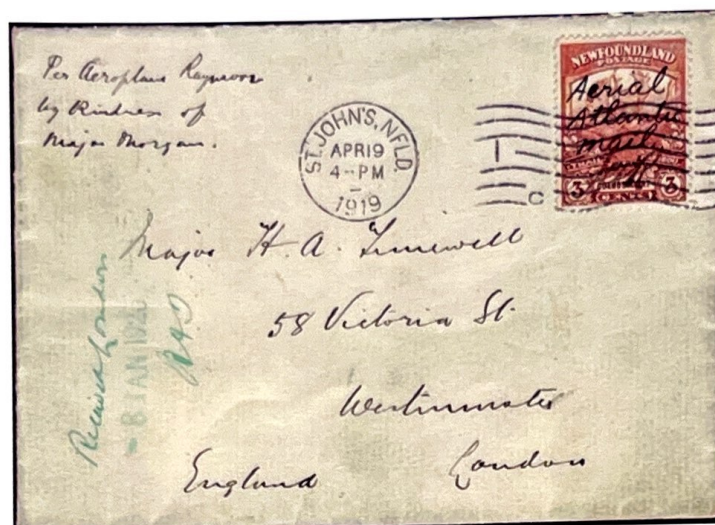 Per Aeroplane Raymor
by Kindness of
Major Morgan.
ST. JOHN'S, NFLD.
APR 19
4-PM
1919
C
NEWFOUNDLAND
POSTAGE
Aerial
Atlantic
mail
3 3
CENTS
Major H. A. Timewell
58 Victoria St.
Westminster
London
England
Received London
- 8 JAN 1920